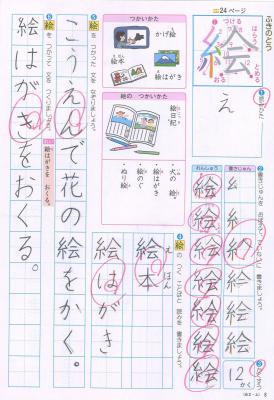 ふきのとう
24ページ
つける
はらう
おる
とめる
絵
①読みかた
え
②書きじゅんを おぼえて ていねいに 書きましょう。
書きじゅん
れんしゅう
絵
絵
絵
絵
絵
絵
③かくすう
12かく
つかいかた
かげ絵
絵本
絵はがき
絵の つかいかた
絵日記
火の絵
絵はがき
絵のぐ
ぬり絵
④絵の つく ことばと 読みを 書きましょう。
えほん
絵本
絵はがき
⑤絵を つかった 文を なぞりましょう。
こうえんで花の絵をかく。
⑥絵を つかって 文を つくりましょう。
れい 絵はがきを おくる。
絵はがきをおくる。
8